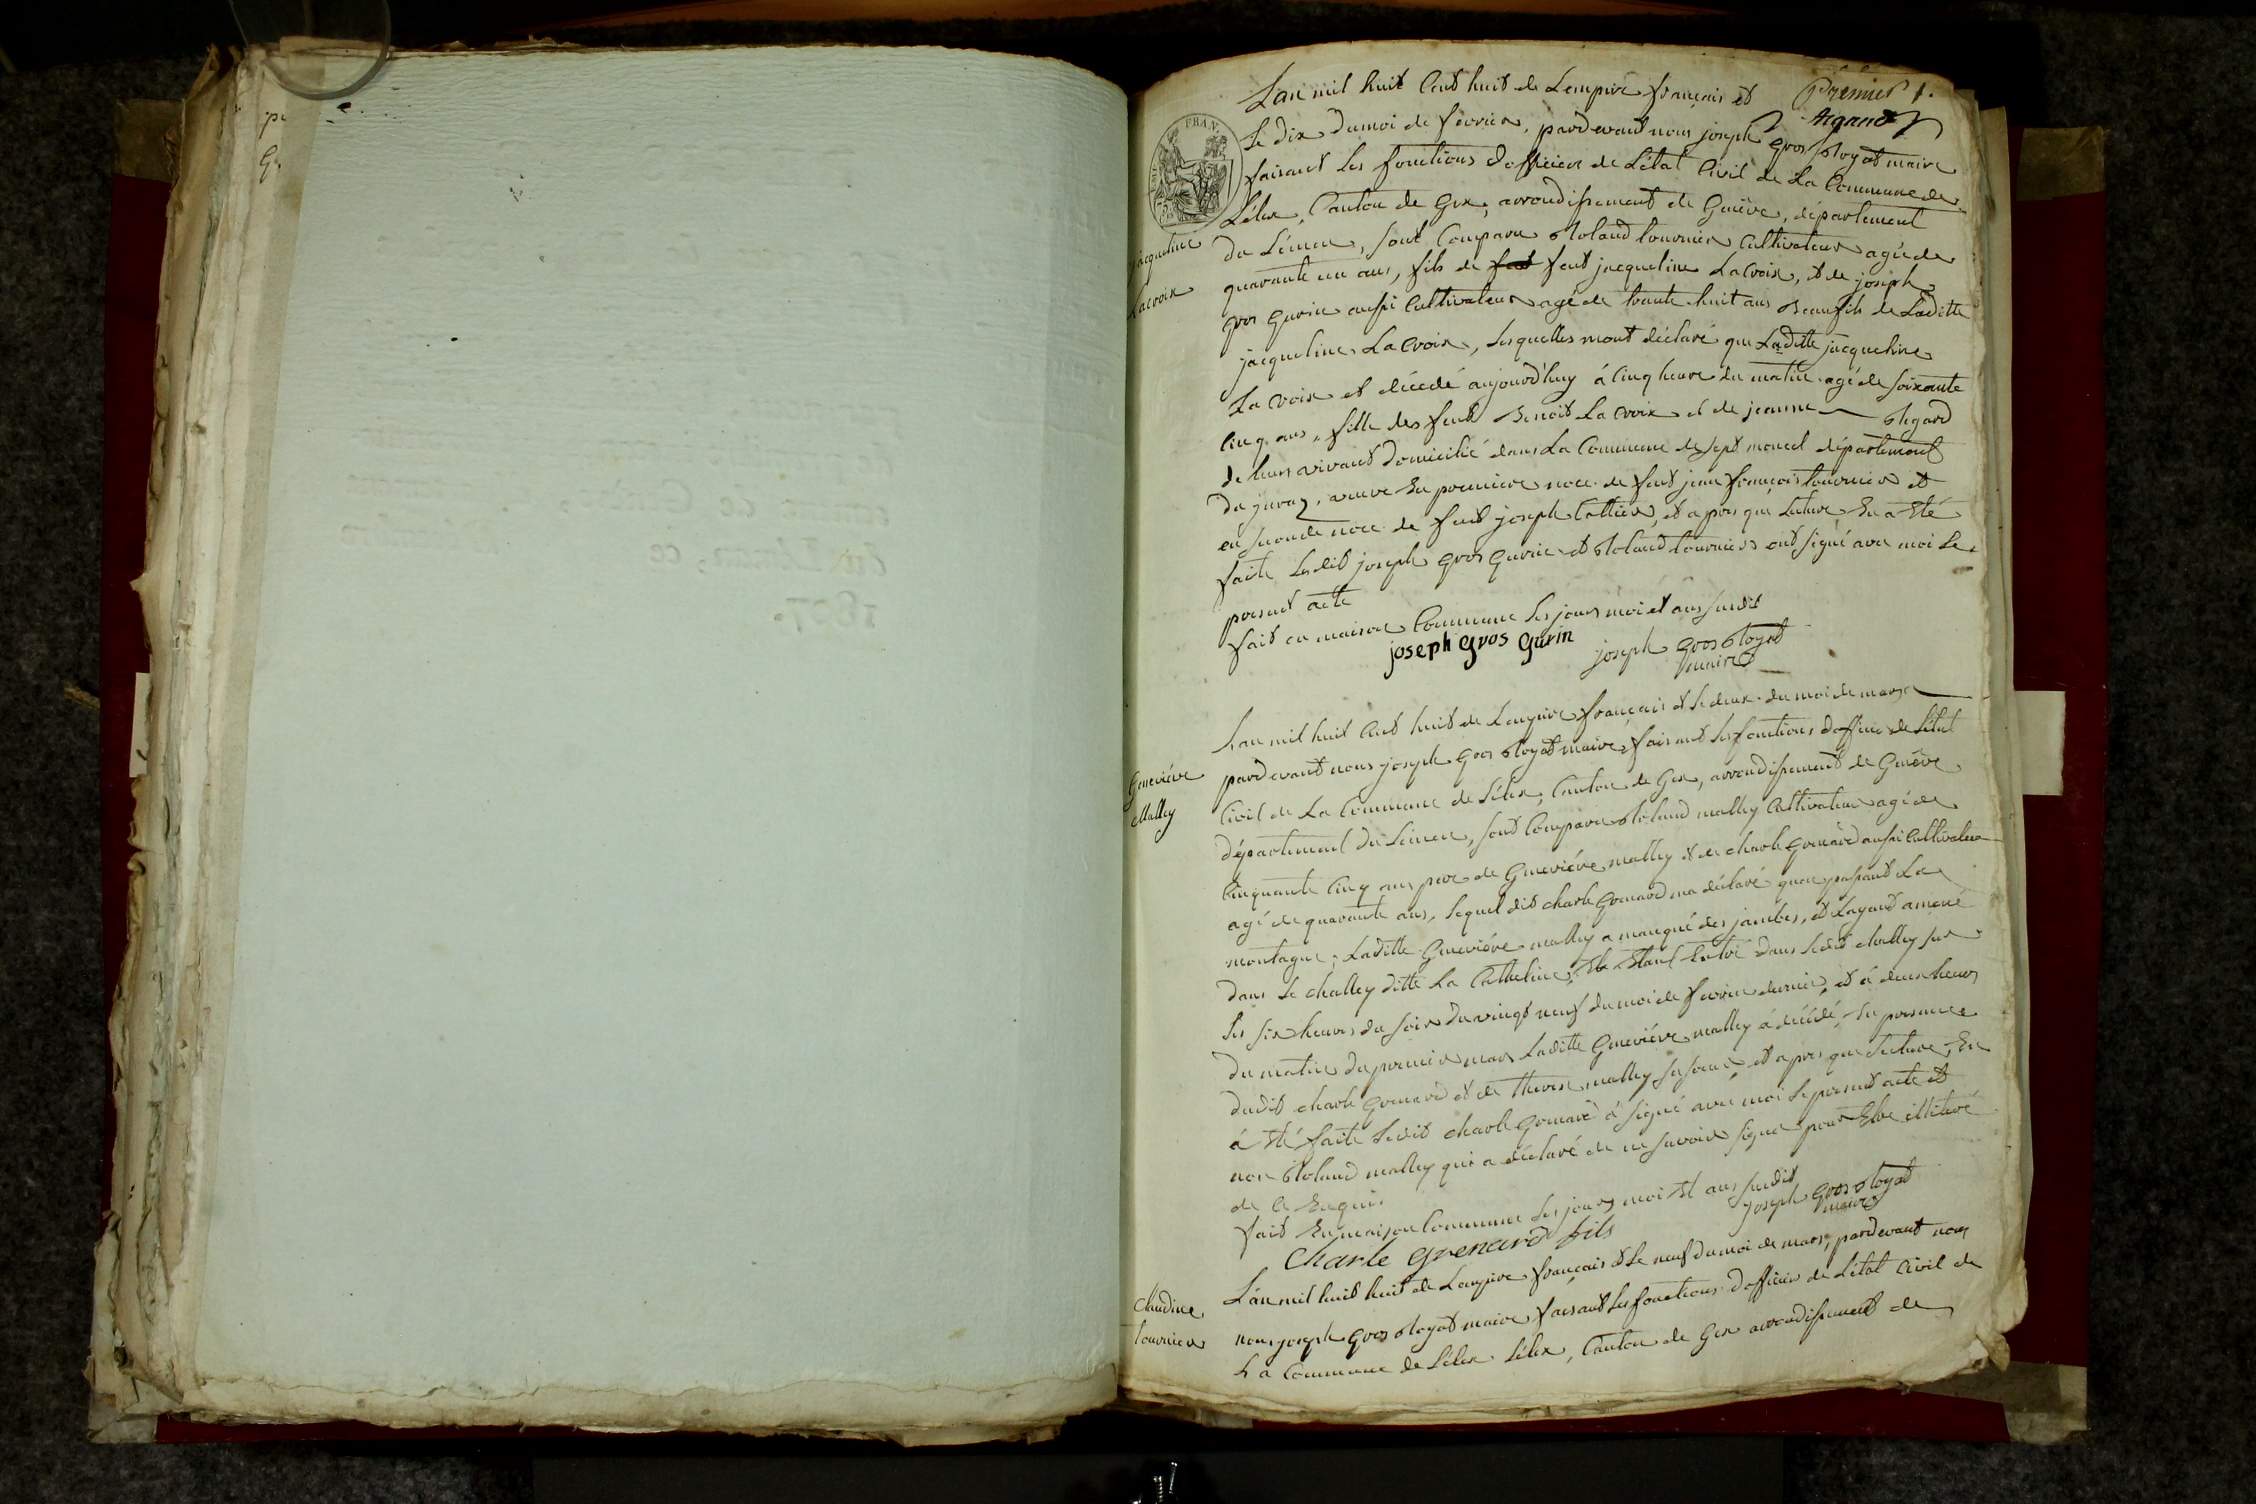 Premier 1.
Argand
L'an mil huit Cent huit de L'empire français et
Le dix du moi de fevrier, pardevant nous joseph gros Royat maire
faisant Les fonctions d'officier de L'état Civil de La Commune de
Lélex, Canton de Gex, arrondissement de Genève, département
du Léman, sont Comparu Roland tournier Cultivateur agé de
jacqueline
Lacroix
quarante un ans, fils de feut feut jacqueline Lacroix, et de joseph
gros gurin aussi Cultivateur agé de trante huit ans Beaufils de Laditte
jacqueline La Croix, Lesquelles mont déclaré que Laditte jacqueline
La Croix et décedé aujourd'huy á Cinq heure du matin agé de soixante
Cinq ans, fille des feut Benoit La Croix et de jeanne Regard
de leurs vivant domicilié dans La Commune de Sept moncel département
du juraz, veuve En premiere noce de feut jean françois tournier et
en seconde noce de feut joseph Cattier, et apres que Lecture En a Eté
faite Lesdit joseph gros gurin et Roland tournier ont signé avec moi Le
present acte
fait en maison Commune Les jour moi et ans susdit
joseph gros gurin joseph gros Royat
maire
L'an mil huit Cent huit de L'empire français et Le deux du moi de mars
Geneviéve
Malley
pardevant nous joseph gros Royat maire, faisant Les fonctions d'officier de L'état
Civil de La Commune de Lélex, Canton de Gex, arrondissement de Genève
département du Léman, sont Comparu Roland malley Cultivateur agé de
Cinquante Cinq ans pere de Geneviéve malley et de charle Grenard aussi Cultivateur
agé de quarante ans, Lequel dit charle Grenard ma déclaré quen passant La
montagne, Laditte Geneviéve malley a manqué des jambes, et Layant amené
dans Le challey ditte La Catheline, Et Etant Entré dans Ledit challey sur
Les six heures du soir du vingt neuf du moi de fevrier dernier, et á deux heures
du matin du premier mars Laditte Geneviéve malley á décédé En presence
dudit charle Grenard et de Therese malley sa soeur, et apres que Lecture En
á Eté faite Ledit charle Grenard á signé avec moi Le present acte et
non Roland malley qui a déclaré de ne savoir signer pour Etre illitéré
de Ce Enquis
fait En maison Commune Les jours moi Et ans susdit
joseph gros Royat
maire
Charle grenard fils
Claudine
tournier
L'an mil huit huit de L'empire français et Le neuf du moi de mars, pardevant nous
nous joseph gros Royat maire faisant Les fonctions d'officier de L'état Civil de
La Commune de Lélex Lélex, Canton de Gex arrondissement de